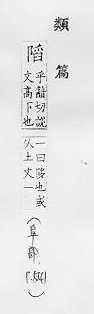 類篇
陷
乎韽切說
文高下也
一曰陊也或
从土文一
(阜部